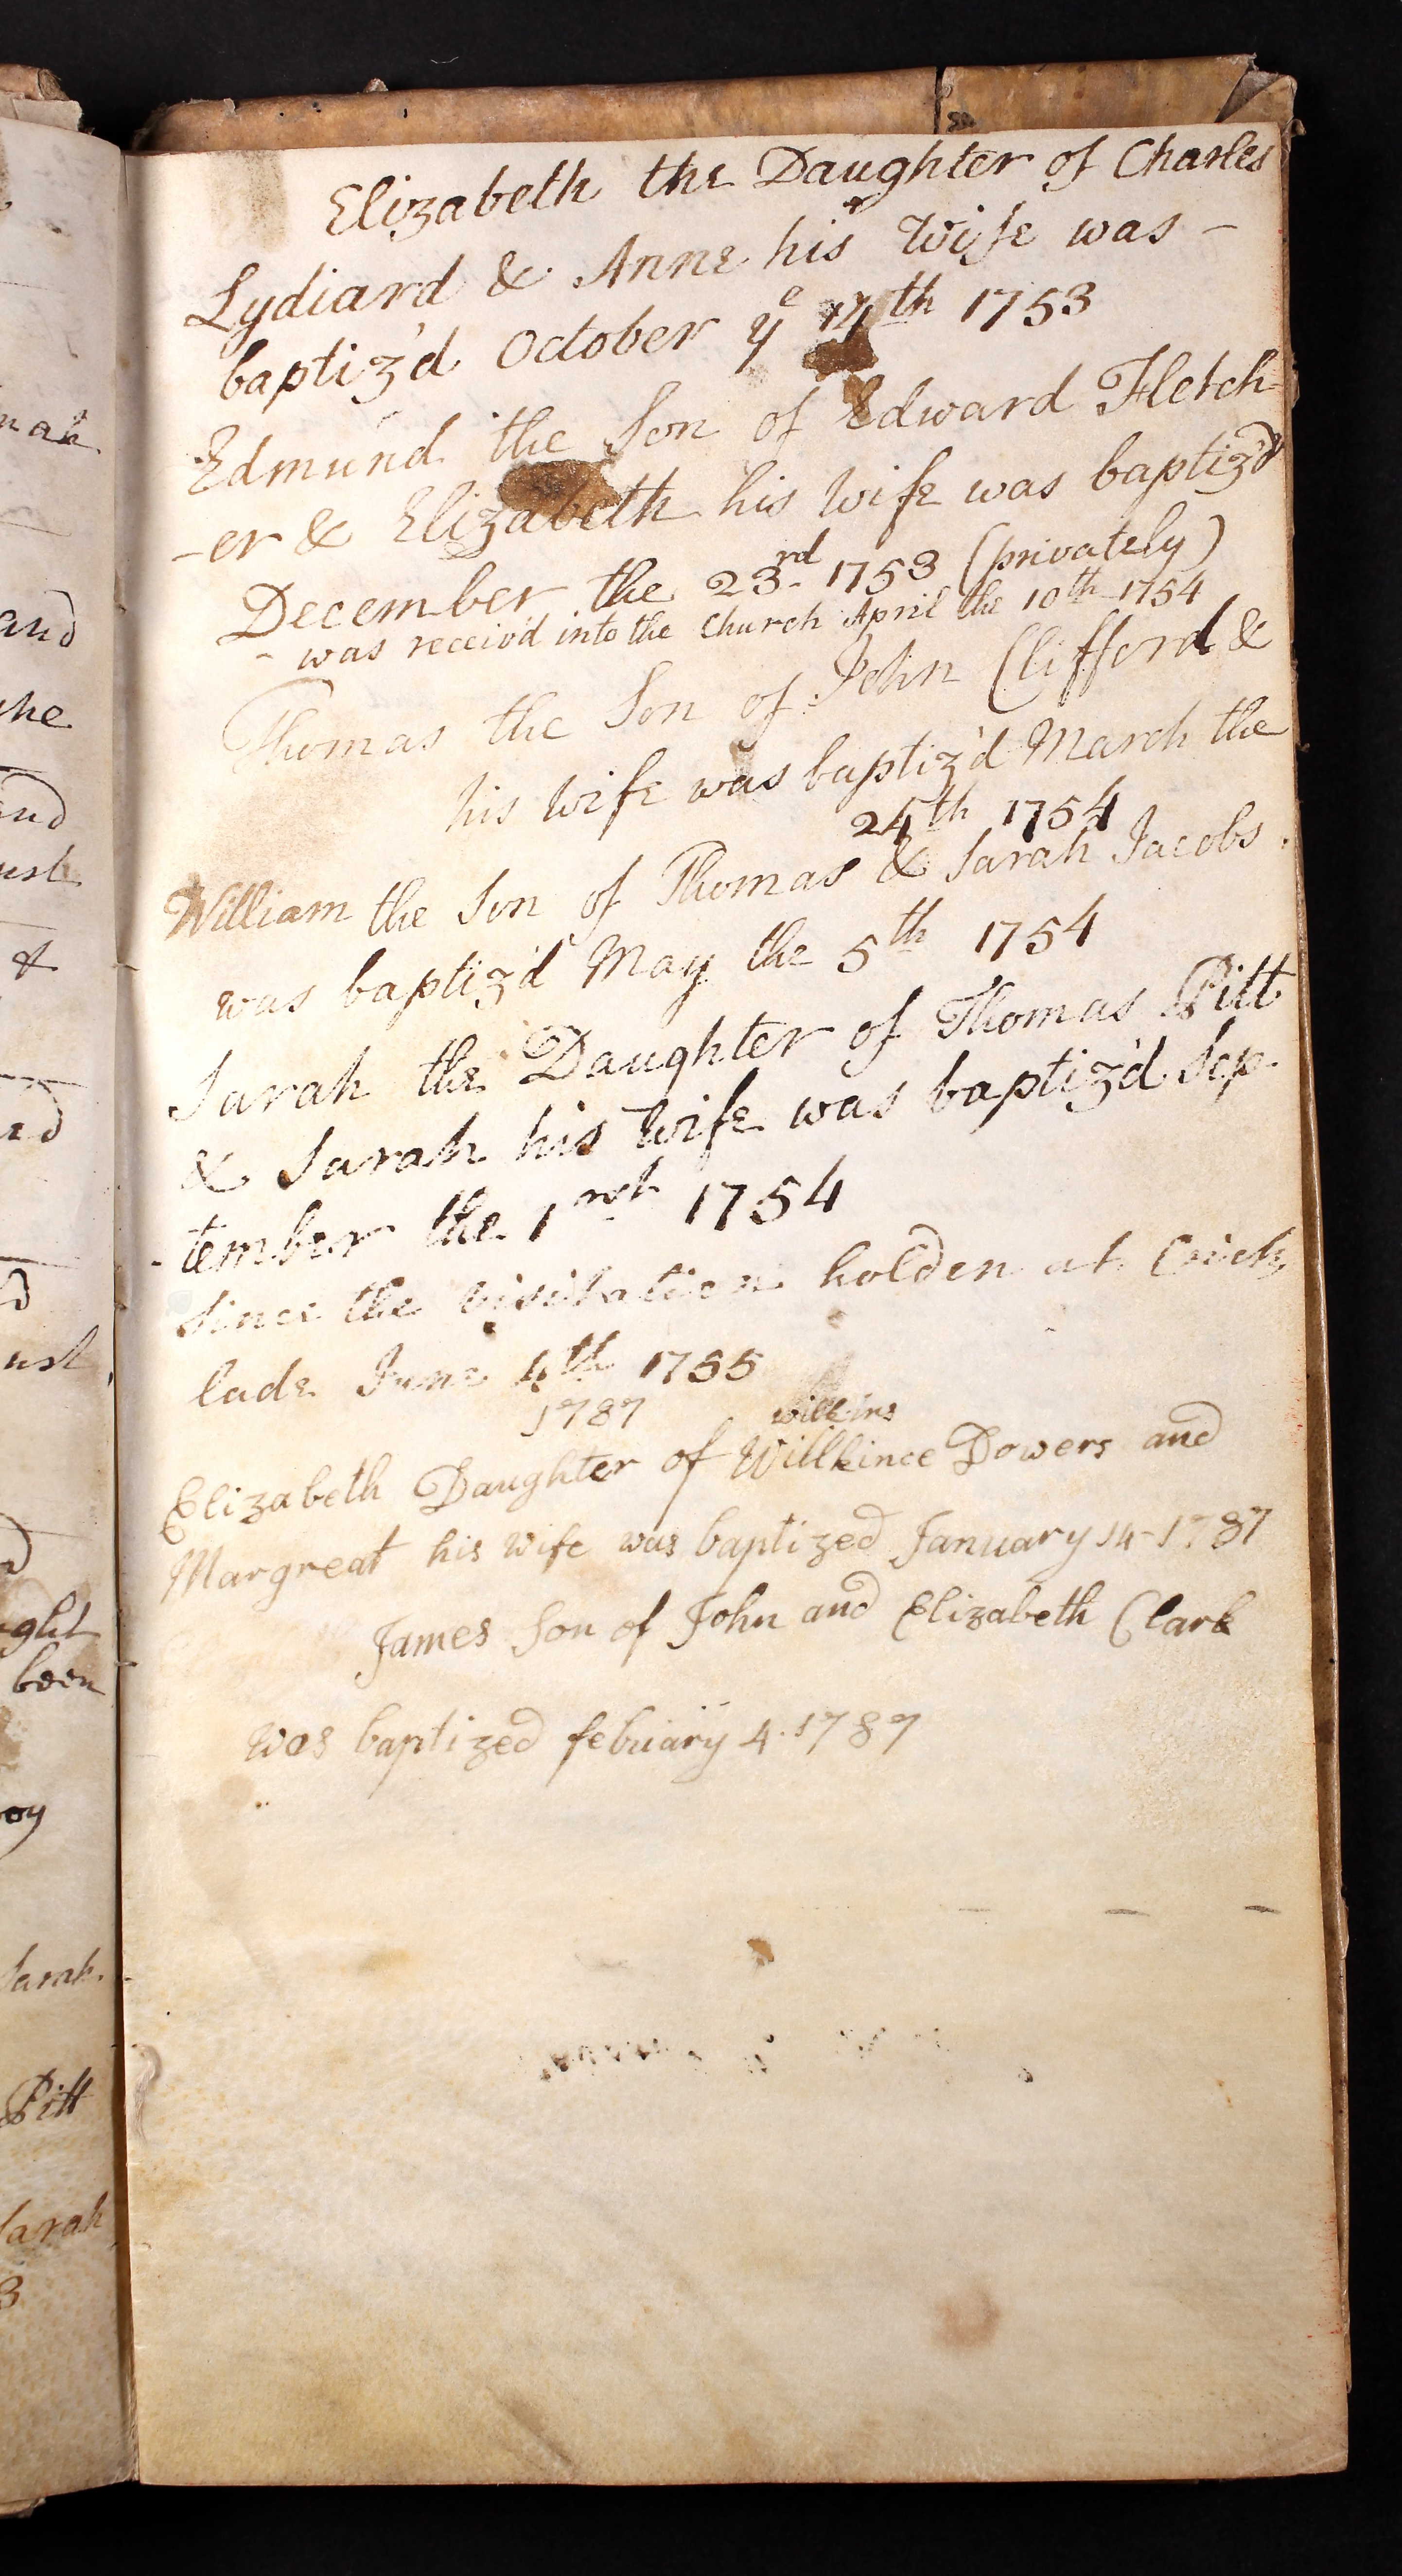 Elizabeth the Daughter of Charles
Lydiard & Anne his Wife was -
baptiz'd October ye 14th 1753
Edmund the Son of Edward Fletch
-er & Elizabeth his Wife was baptiz'd
December the 23rd 1753 (privately)
- was receiv'd into the Church April the 10th 1754
Thomas the Son of John Clifford &
his Wife was baptiz'd March the
24th 1754
William the Son of Thomas & Sarah Jacobs.
was baptiz'd May the 5th 1754
Sarah the Daughter of Thomas Pitt
& Sarah his Wife was baptiz'd Sep-
-tember the 1rst 1754
Since the Visitation holden at Crick
lade June 4th 1755
1787
wilkins
Elizabeth Daughter of Willkince Dowers and
Margreat his Wife was baptized January 14-1787
James Son of John and Elizabeth Clark
was baptized febuiary 4. 1787
nah
and
the
and
ust
&
nd
ust
ght
been
Sarah.
Pitt
Sarah
3